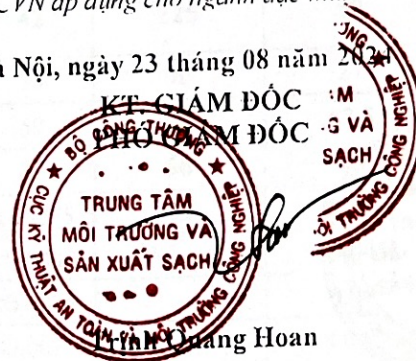 CVN áp dụng cho ngành đặc
Nội, ngày 23 tháng 08 năm 2024
KT. GIÁM ĐỐC
PHÓ GIÁM ĐỐC
BỘ CÔNG THƯƠNG
CỤC KỸ THUẬT AN TOÀN VÀ MÔI TRƯỜNG CÔNG NGHIỆP
TRUNG TÂM
MÔI TRƯỜNG VÀ
SẢN XUẤT SẠCH
M
G VÀ
SẠCH
TRƯỜNG CÔNG NGHIỆP
Trịnh Quang Hoan